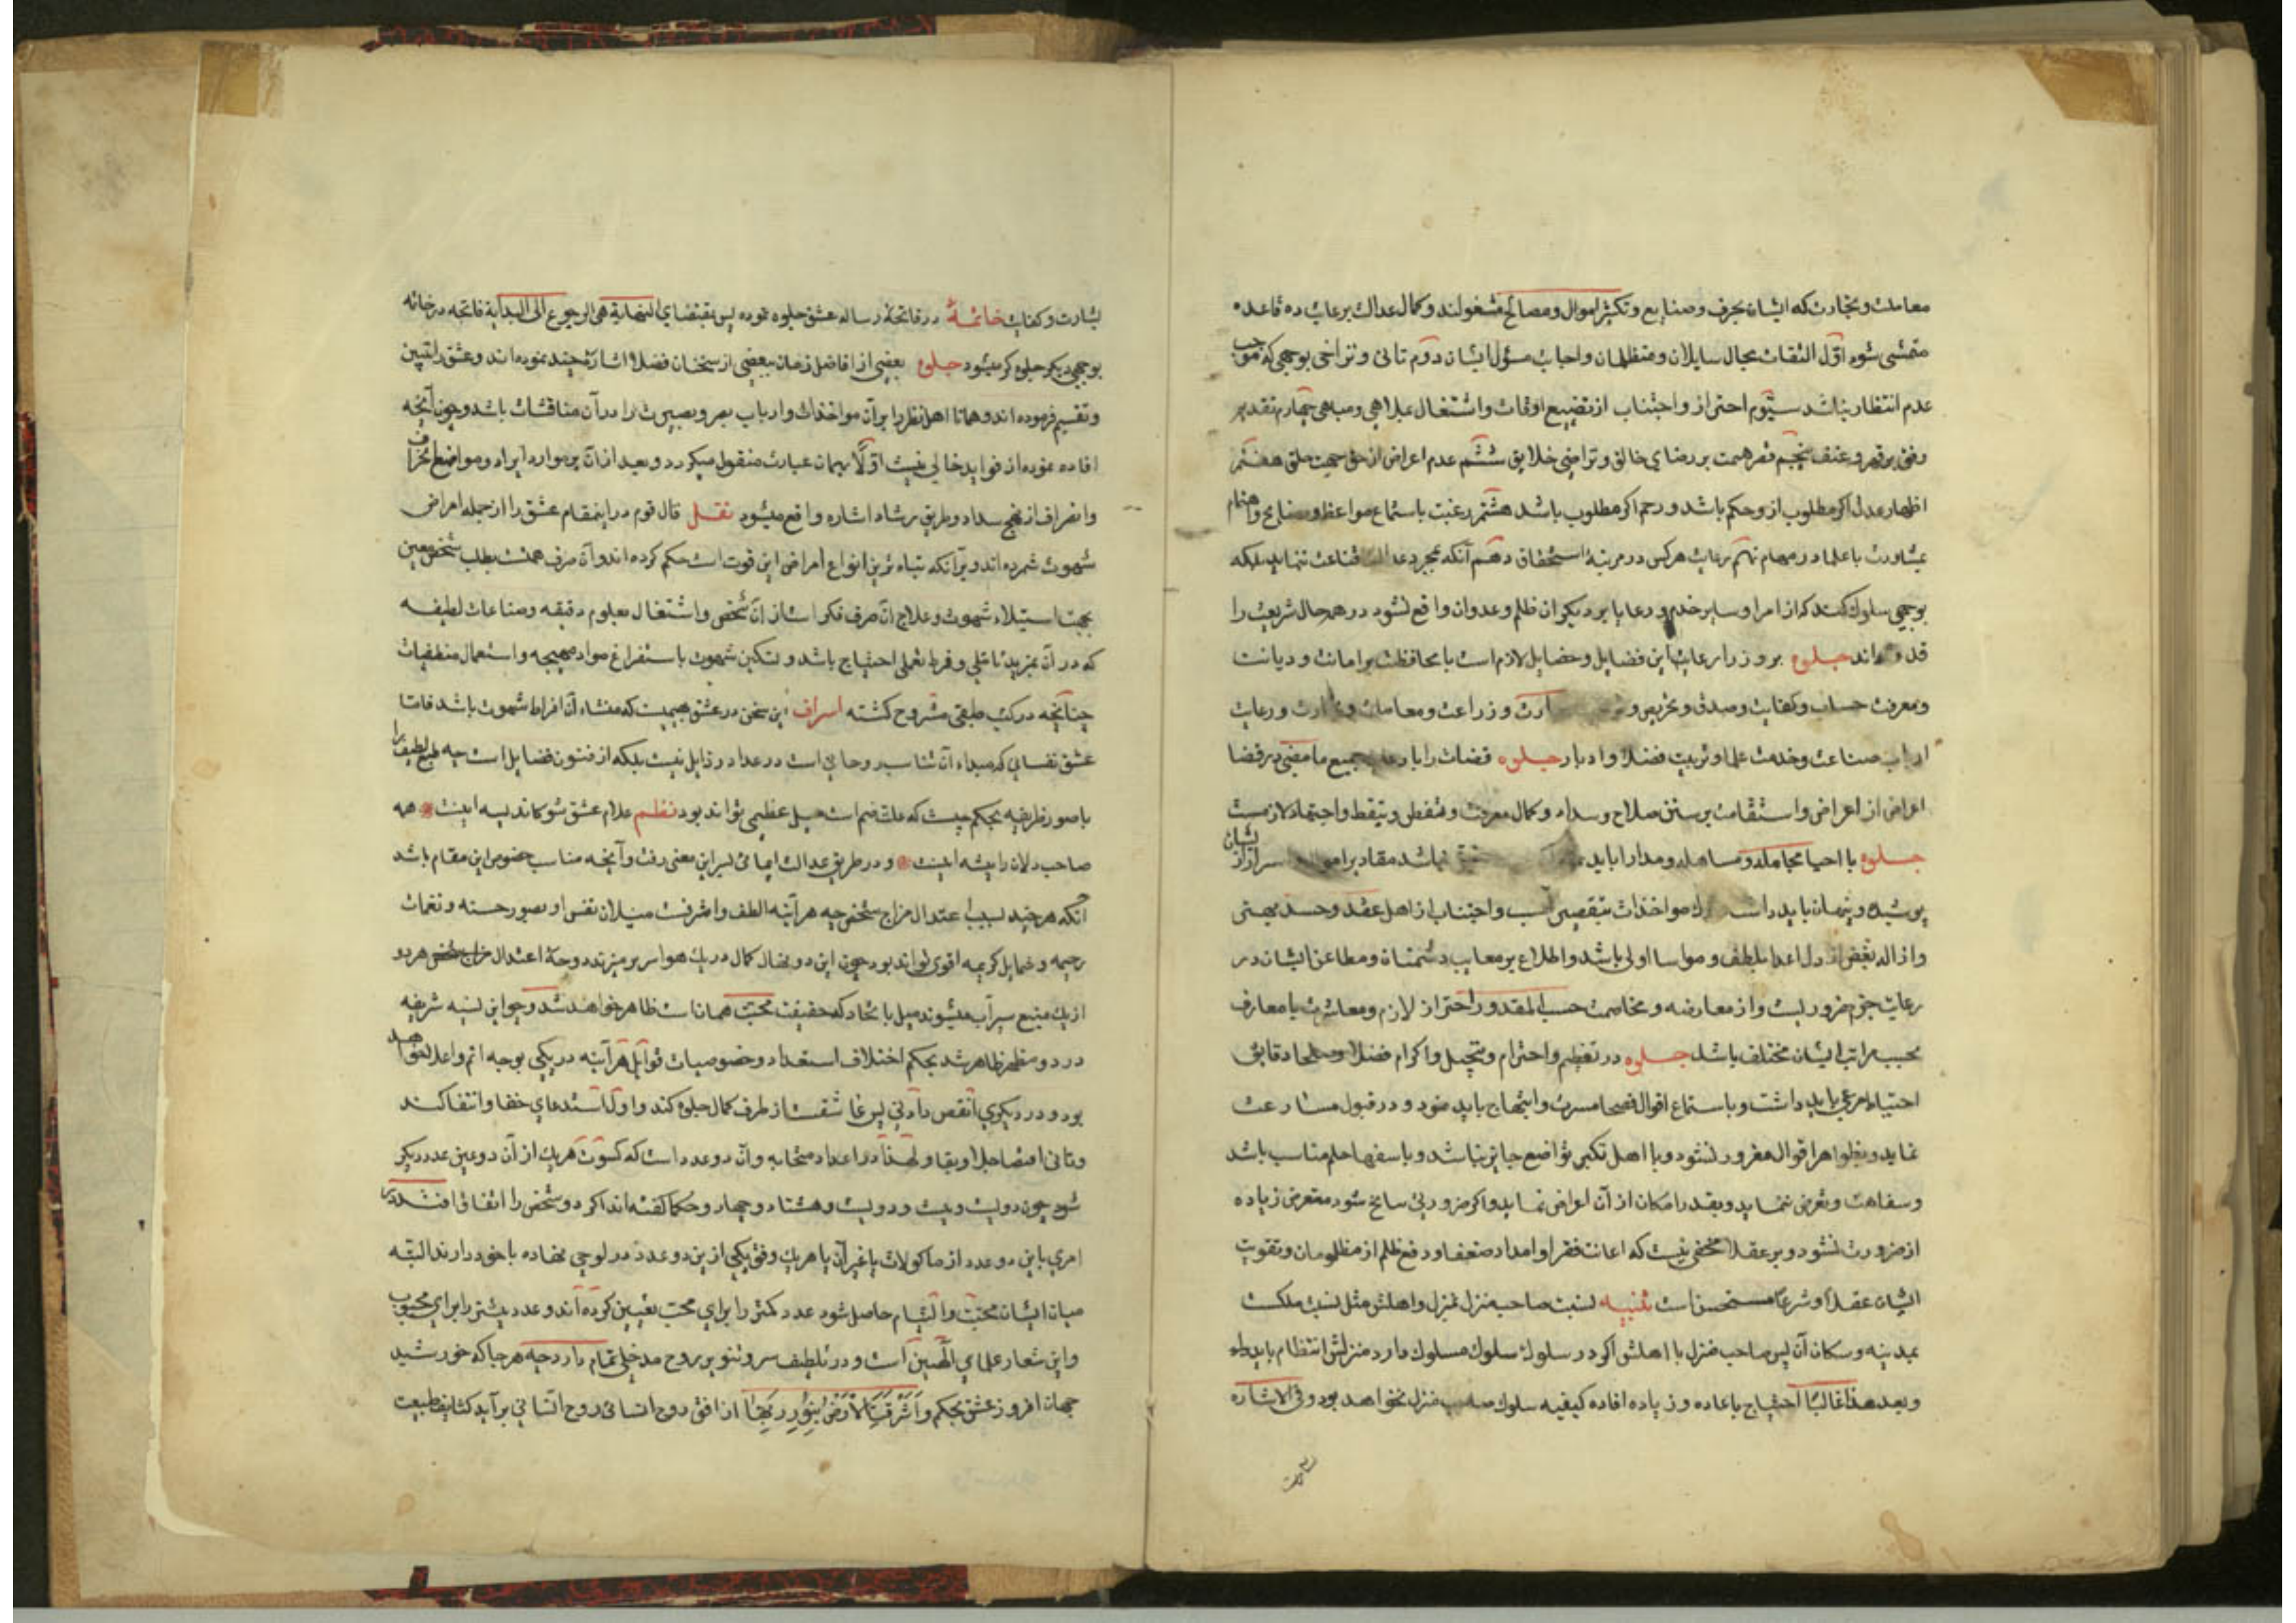 معاملت و تجارت که ایشان بحرف و صنایع و تکثیر اموال و مصالح مشغولند و کمال عدالت برعایت ده قاعده
متمشی شود اوّل التفات بحال سایلان و متظلمان و اجابت مسؤل ایشان دوّم تانی و تراخی بوجهی که موجب
عدم انتظار نباشد سیّوم احتراز و اجتناب از تضییع اوقات و اشتغال بملاهی و مباهی چهارم تقدیم
رفق بر قهر و عنف پنجم قصر همت بر رضای خالق و تراضی خلایق ششم عدم اعراض از حق جهت خلق هفتم
اظهار عدل اکر مطلوب ازو حکم باشد و رحم اکر مطلوب باشد هشتم رغبت باستماع مواعظ و نصایح و اهتمام
بمشاورت با علما در مهام نهم رعایت هرکس در مرتبهٔ استحقاق دهم آنکه بمجرد عدالت قناعت ننماید بلکه
بوجهی سلوک کند که از امرا و سایر خدم و رعایا بر دیکران ظلم و عدوان واقع نشود در همه حال شریعت را
قدوه داند جلوه بر وزرا رعایت این فضایل و خصایل لازم است با محافظت بر امانت و دیانت
و معرفت حساب و کفایت و صدق و تحریص و عمارت و زراعت و معاملت و تجارت و رعایت
ارباب صناعت و خدمت علما و تربیت فضلا و ادبا جلوه قضات را با رعایت جمیع ما مضی در قضا
اعراض از اعراض و استقامت بر سنن صلاح و سداد و کمال معرفت و تفطن و تیقظ و اجتهاد لازمست
جلوه با احبا مجامله و مساهله و مدارا باید نباشد مقادیر اموال سرار از ایشان
پوشیده و پنهان باید داشت ترک مواخذات بتقصیر انسب و اجتناب از اهل عقد و حسد
و ازاله بغض از دل اعدا بلطف و مواسا اولی باشد و اطلاع بر معایب دشمنان و مطاعن ایشان در
رعایت حزم ضروریست و از معارضه و مخاصمت حسب المقدور احتراز لازم و معاشرت با معارف
بحسب مراتب ایشان مختلف باشد جلوه در تعظیم و احترام و تبجیل و اکرام فضلا و صلحا دقایق
احتیاط مرعی باید داشت و باستماع اقوال فصحا مسرت و ابتهاج باید نمود و در قبول مسارعت
نماید و بظواهر اقوال مغرور نشود و با اهل تکبر تواضع جایز نباشد و با سفها حلم مناسب باشد
و سفاهت و تعرض ننماید و بقدر امکان از آن اعراض نماید و اکر ضرورتی سانح شود متعرض زیاده
از ضرورت نشود و بر عقلا مخفی نیست که اعانت فقرا و امداد ضعفا و دفع ظلم از مظلومان و تقویت
ایشان عقلاً و شرعاً مستحسن است تنبیه نسبت صاحب منزل بمنزل و اهلش مثل نسبت ملکست
بمدینه و سکان آن پس صاحب منزل با اهلش اکر در سلوک سلوک مسلوک دارد منزلش انتظام یابد
و بعد هذا غالباً احتیاج باعاده و زیاده افاده کیفیه سلوک صاحب منزل نخواهد بود و فی الاشاره
بشارت و کفایت خاتمهٔ در فاتحهٔ رساله عشق جلوه نموده پس بمقتضای النهایة هی الرجوع الی البدایة فاتحه در خاتمه
بوجهی دیکر جلوه کر میشود جلوه بعضی از افاضل زمان ببعضی از سخنان فضلا اشارهٔ چند نموده اند و عشق را تبیین
و تقسیم فرموده اند و همانا اهل نظر را بر آن مواخذات و ارباب بصر و بصیرت را در آن مناقشات باشد و چون آنچه
افاده نموده از فواید خالی نیست اوّلا بهمان عبارت منقول میکردد و بعد از آن بر موارد ایراد و مواضع انحراف
و انصراف از نهج سداد و طریق رشاد اشاره واقع میشود نقل قال قوم درینمقام عشق را از جمله امراض
شهوت شمرده اند و برآنکه تباه ترین انواع امراض این قوت است حکم کرده اند و آن صرف همتست بطلب شخصی معین
بجهت استیلاء شهوت و علاج آن صرف فکر است از آن شخص و اشتغال بعلوم دقیقه و صناعات لطیفه
که در آن بمزید تاملی و فرط تعملی احتیاج باشد و تسکین شهوت باستفراغ مواد مهیجه و استعمال منطفیات
چنانچه در کتب طبقی مشروح کشته اسراف این سخن در عشق بهیمیست که منشاء آن افراط شهوت باشد فاما
عشق نفسانی که مبداء آن تناسب روحانی است در عداد رذایل نیست بلکه از فنون فضایل است چه طبع لطیف را
با صور ظریفه بحکم جنسیت که علت ضم است میل عظیمی تواند بود نظم علام عشق شو کاندیشه اینست همه
صاحب دلان را پیشه اینست و در طریق عدالت ایمائی بسر این معنی رفت و آنچه مناسب خصوص این مقام باشد
آنکه هر چند بسبب اعتدال مزاج شخصی چه هرآینه الطف و اشرفست میلان نفس او بصور حسنه و نغمات
رخیمه و شمایل کریمه اقوی تواند بود چون این دو نهال کمال در یک هوا سر بر میزند و وحدة اعتدال مزاج شخص هر دو
از یک منبع سیرآب میشوند میل باتحاد که حقیقت محبت همانست ظاهر خواهد شد و چو این نسبه شریفه
در دو مظهر ظاهر شد بحکم اختلاف استعداد و خصوصیات قوابل هرآینه در یکی بوجه اتم و اعلا خواهد
بود و در دیکری انقص و ادنی پس عاشقست از طرف کمال جلوه کند و اول استدعای خفا و انتفا کند
و ثانی اقتضا جلا و بقا و لهذا در اعداد متحابه و آن دو عدد است که کسوت هریک از آن دو عین عدد دیکر
شود چون دویست و بیست و دویست و هشتاد و چهار و حکما کفته اند اکر دو شخص را اتفاق افتد که
امری باین دو عدد از ماکولات یا غیر آن یا هریک وفق یکی ازین دو عدد در لوحی نهاده با خود دارند البته
میان ایشان محبت و التیام حاصل شود عدد کمتر را برای محب تعیین کرده اند و عدد بیشتر را برای محبوب
و این شعار علمای الهیین است و در تلطیف سر و تنویر روح مدخلی تمام دارد چه هر جا که خورشید
جهان افروز عشق بحکم وَاَشْرَقَتِ الاَرْضُ بِنُوْرِ رَبِّهَا از افق روح انسانی بر آید کثایف طبیعت